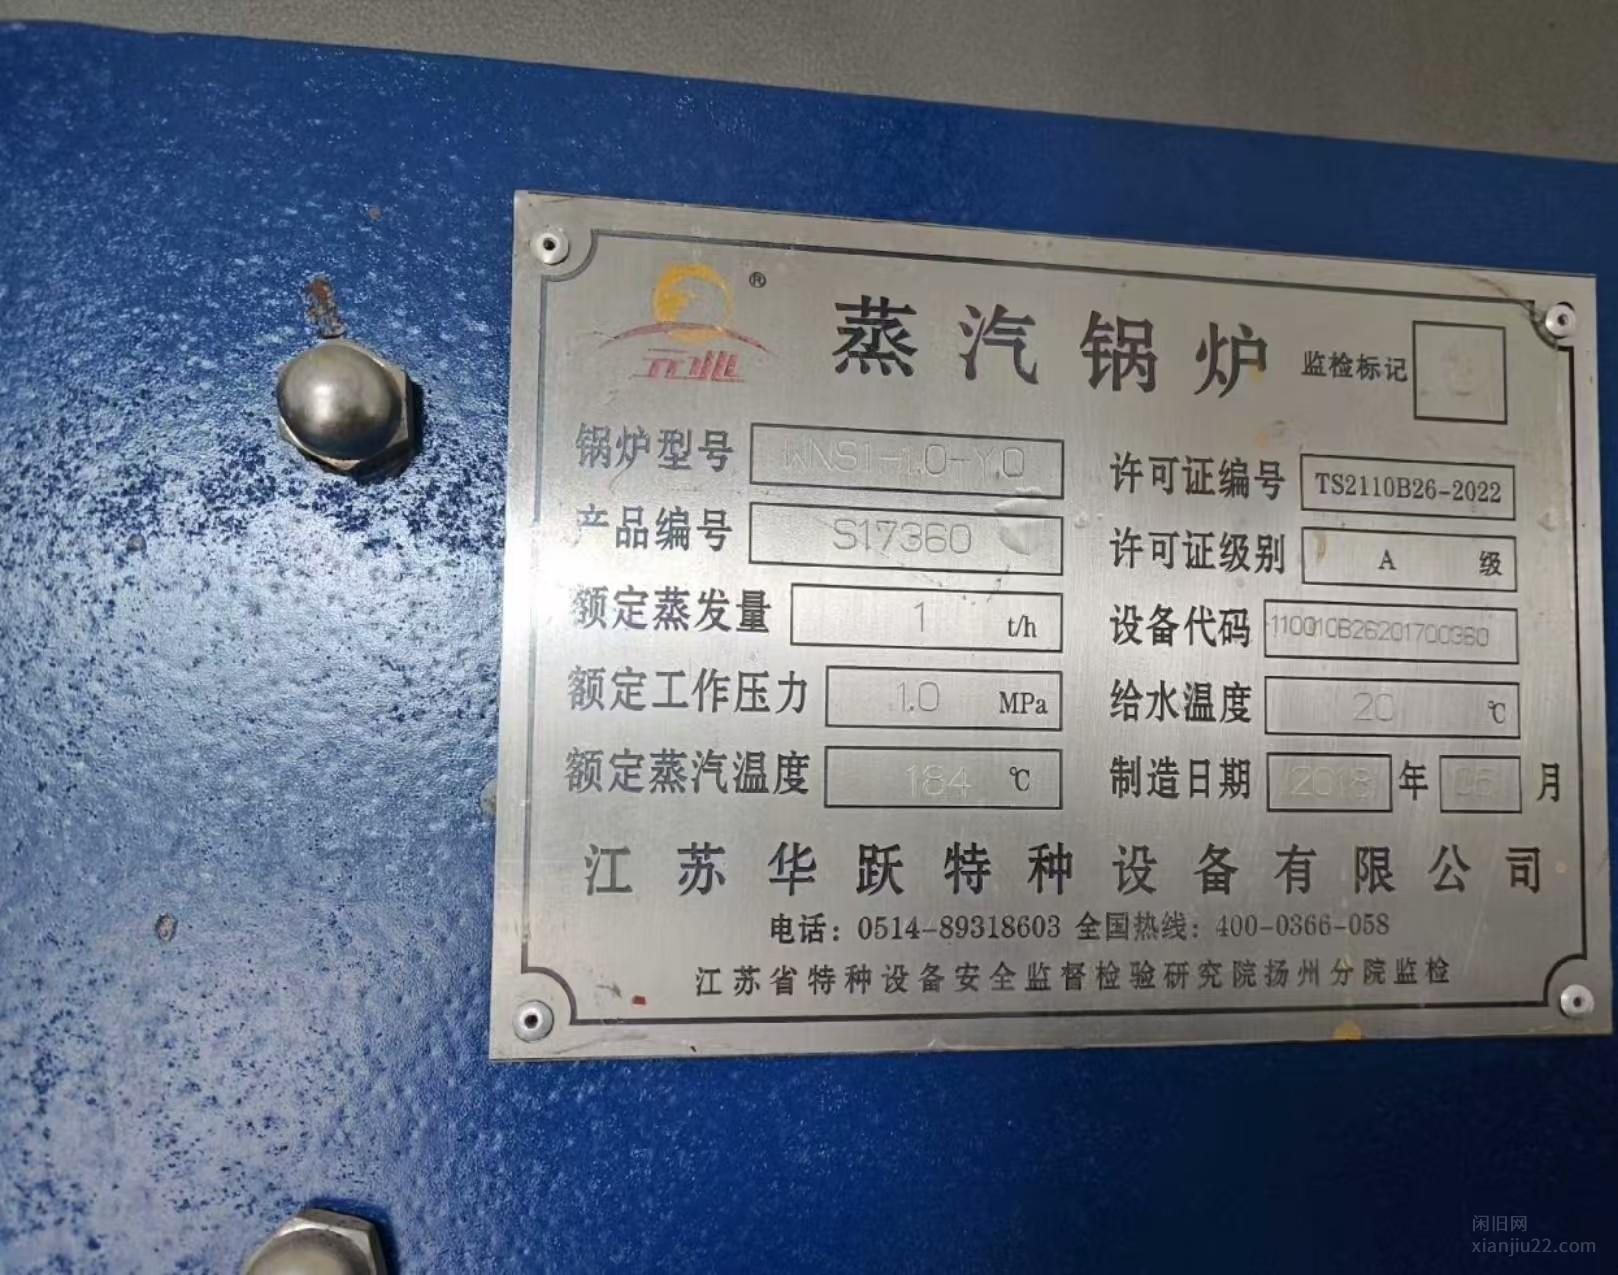 元业 ®
蒸汽锅炉 监检标记
锅炉型号 WNS1-1.0-Y.Q
许可证编号 TS2110B26-2022
产品编号 S17360
许可证级别 A 级
额定蒸发量 1 t/h
设备代码 110010B26201700360
额定工作压力 1.0 MPa
给水温度 20 ℃
额定蒸汽温度 184 ℃
制造日期 2018 年 月
江苏华跃特种设备有限公司
电话：0514-89318603 全国热线：400-0366-058
江苏省特种设备安全监督检验研究院扬州分院监检
闲旧网
xianjiu22.com